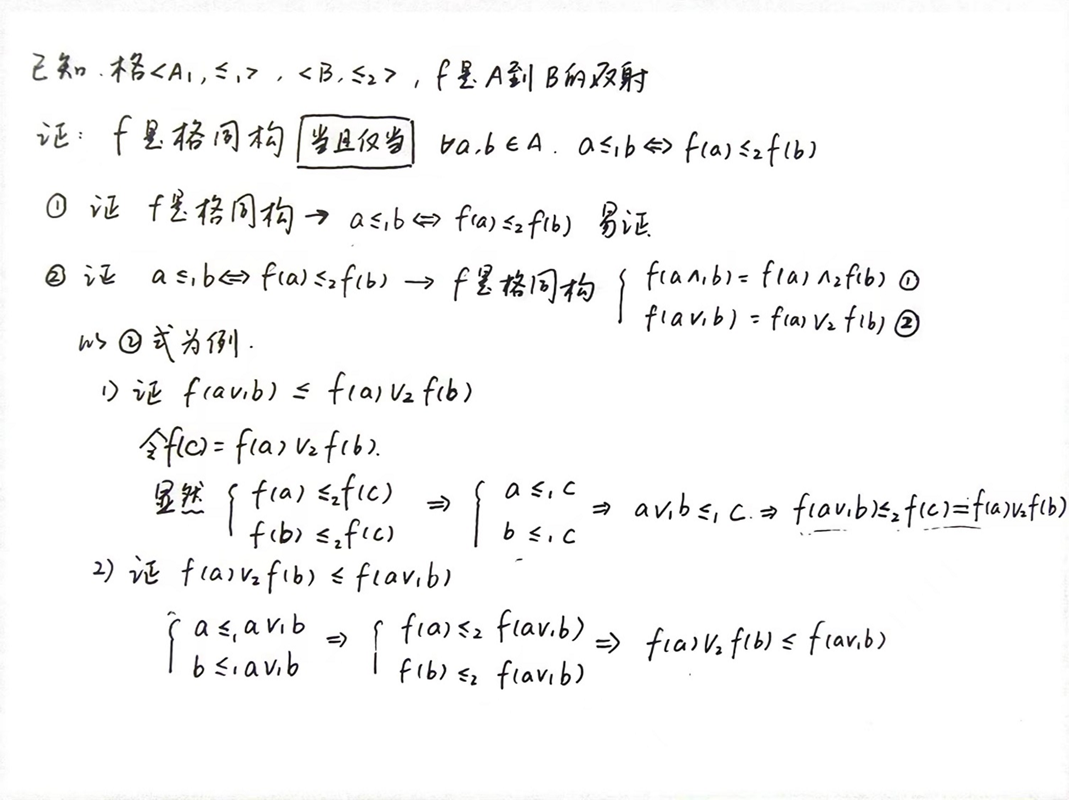 已知.格<A₁,≤₁>,<B,≤₂>,f是A到B的双射
证:f是格同构 当且仅当 ∀a,b∈A. a≤₁b⇔f(a)≤₂f(b)
① 证 f是格同构→ a≤₁b⇔f(a)≤₂f(b) 易证.
② 证 a≤₁b⇔f(a)≤₂f(b) → f是格同构 { f(a∧₁b)=f(a)∧₂f(b) ①
f(a∨₁b)=f(a)∨₂f(b) ②
以②式为例.
1) 证 f(a∨₁b) ≤ f(a)∨₂f(b)
令f(c)=f(a)∨₂f(b).
显然 { f(a)≤₂f(c) ⇒ { a≤₁c ⇒ a∨₁b≤₁c.⇒ f(a∨₁b)≤₂f(c)=f(a)∨₂f(b)
f(b)≤₂f(c) b≤₁c
2) 证 f(a)∨₂f(b) ≤ f(a∨₁b)
{ a≤₁a∨₁b ⇒ { f(a)≤₂f(a∨₁b) ⇒ f(a)∨₂f(b) ≤ f(a∨₁b)
b≤₁a∨₁b f(b)≤₂f(a∨₁b)